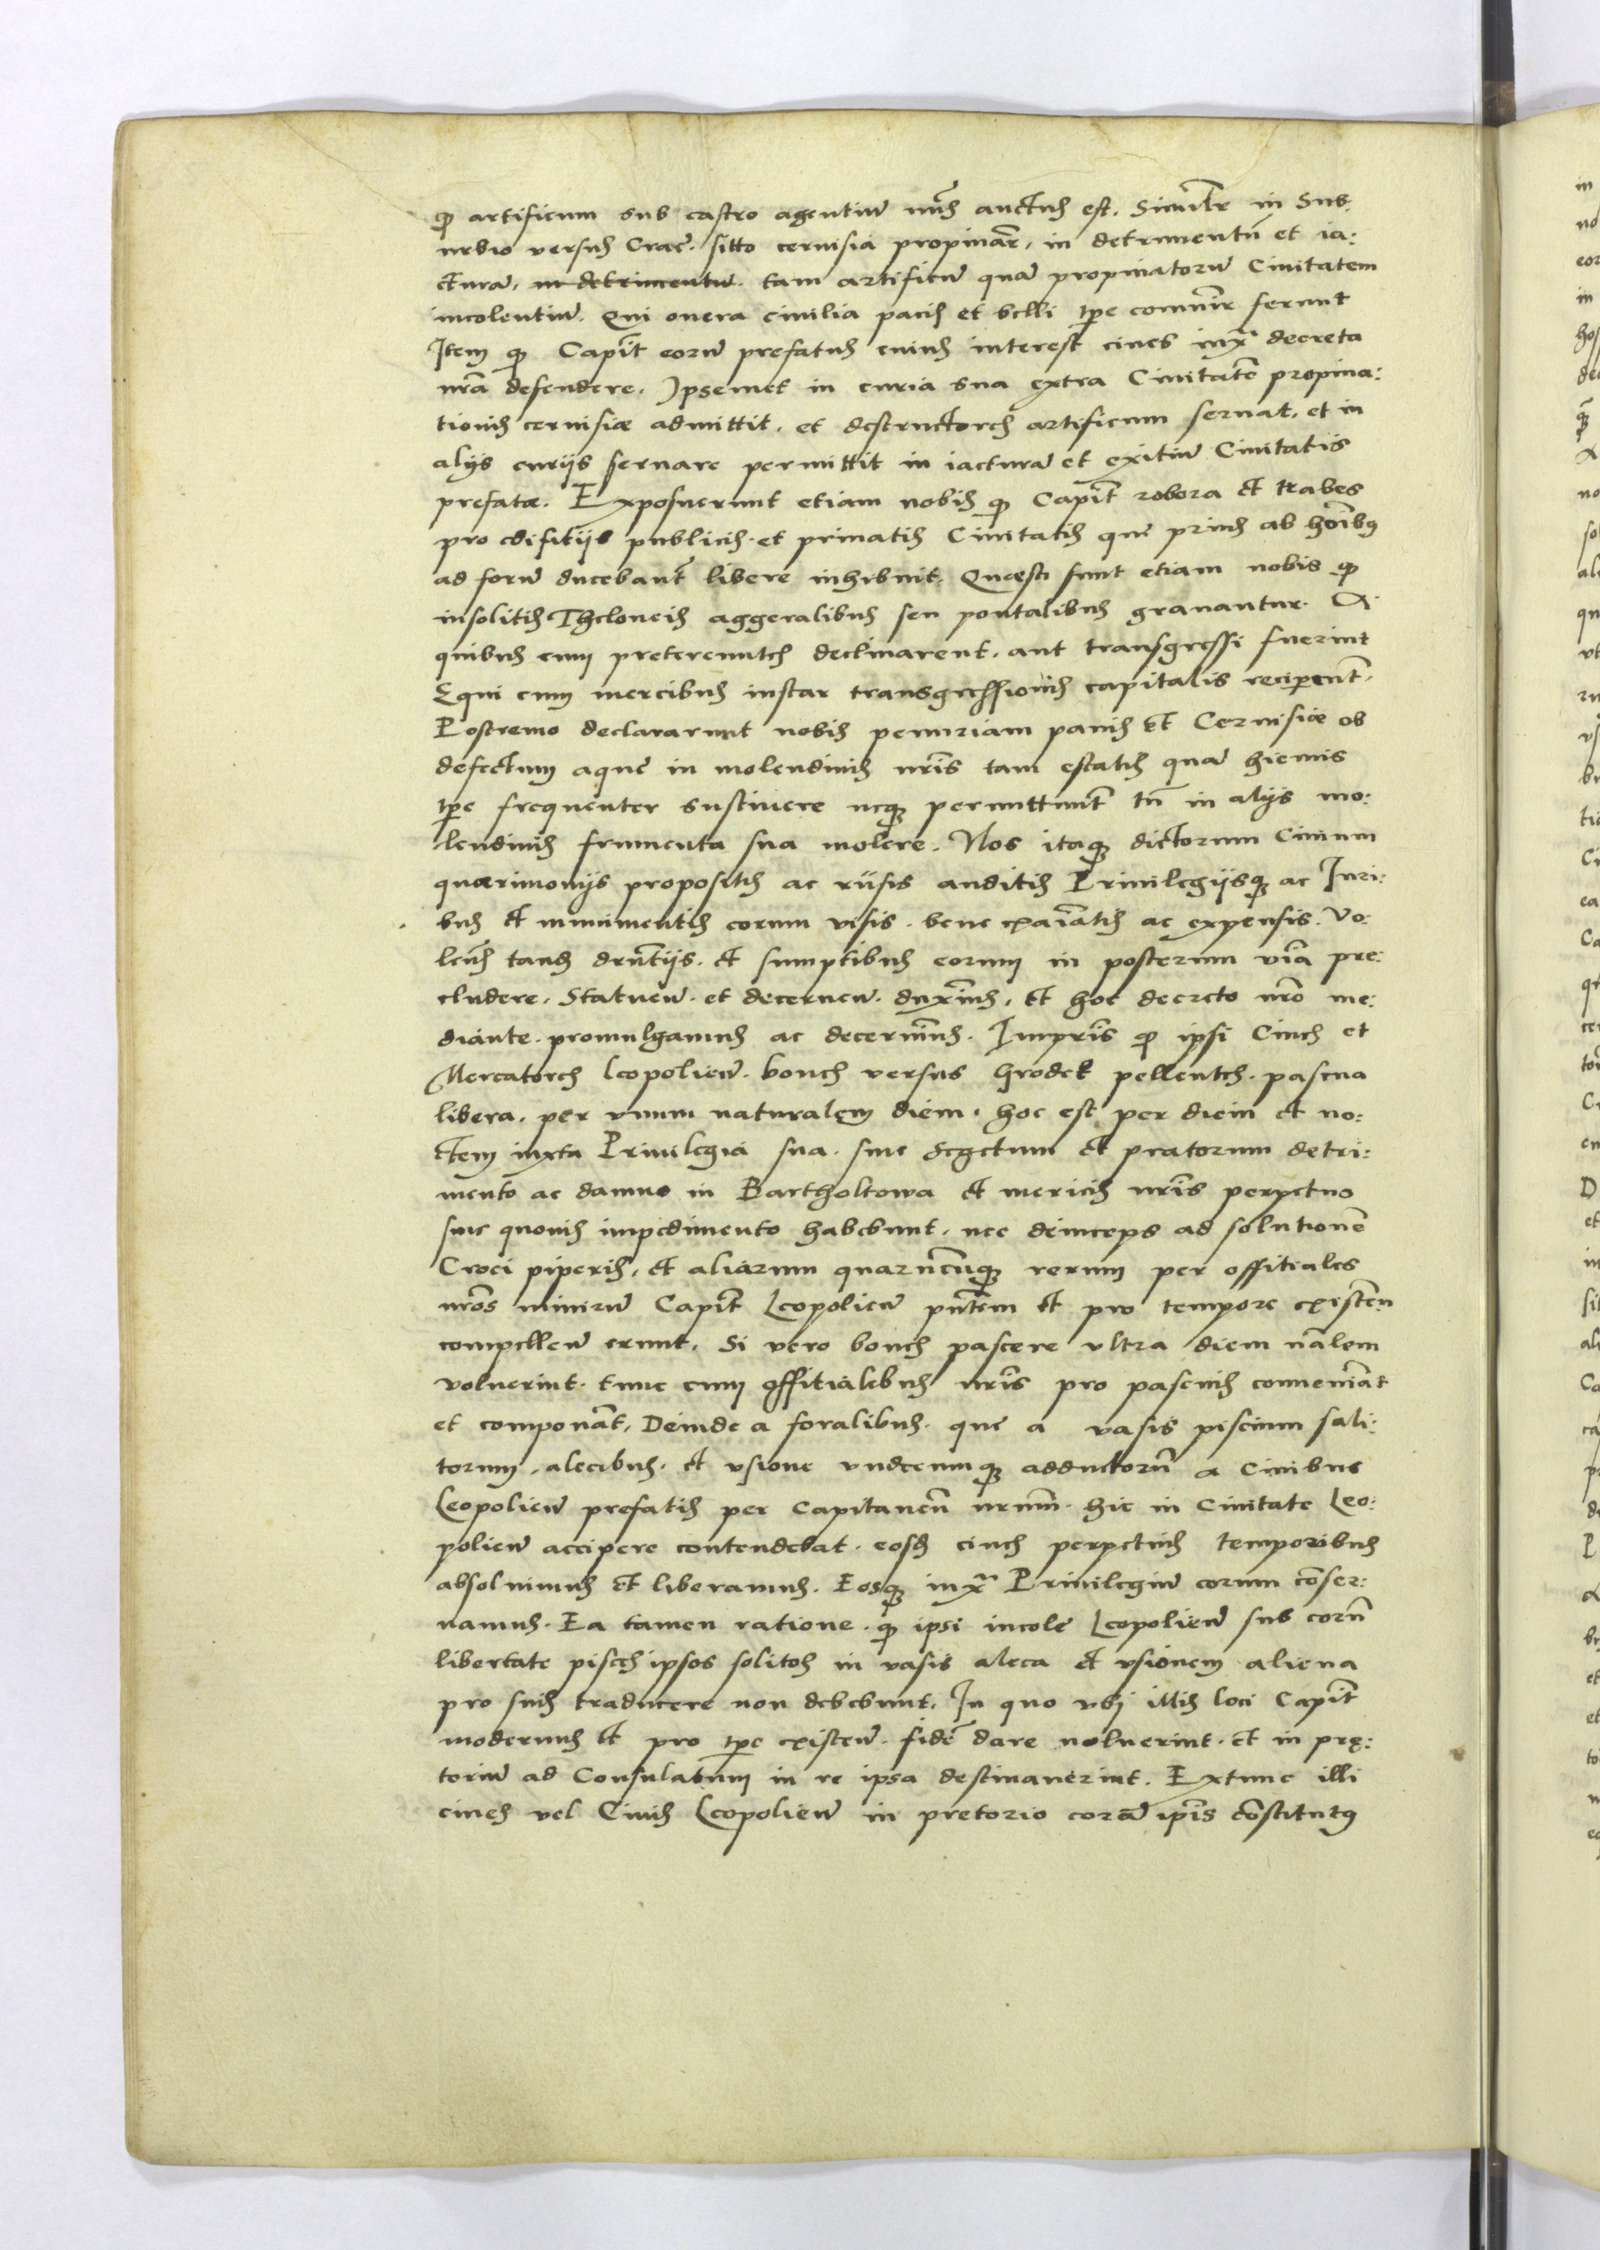 ꝙ artificum sub castro agentiũ nũs auctus est. Similr̃ in Sub⸗
urbio versus Crac̃. sitto ceruisia propinar̃, in detrimentũ et ia⸗
cturã, in detrimentũ. tam artificũ quã propinatorũ Ciuitatem
incolentiũ. Qui onera ciuilia pacis et belli tp̃e comunir̃ ferunt
Item ꝙ Capit̃ eorũ prefatus cuius interest ciues iux̃ decreta
nr̃a defendere. Ipsemet in curia sua extra Ciuitatẽ propina⸗
tionis ceruisiæ admittit. et destructores artificum seruat. et in
alijs curijs seruare permittit in iacturã et exitiũ Ciuitatis
prefatæ. Exposuerunt etiam nobis ꝙ Capit̃ robora et trabes
pro edifitijs publicis et priuatis Ciuitatis que prius ab hoĩbus
ad forũ ducebant̃ libere inhibuit. Questi sunt etiam nobis ꝙ
insolitis Theloneis aggeralibus seu pontalibus grauantur. A
quibus cum pretereuntes declinarent. aut transgressi fuerint
Equi cum mercibus instar transgressionis capitalis recipent̃.
Postremo declararunt nobis penuriam panis et Ceruisiæ ob
defectum aque in molendinis nr̃is tam estatis quã hiemis
tp̃e frequenter sustinere neqꝫ permittunt̃ tñ in alijs mo⸗
lendinis frumenta sua molere. Nos itaqꝫ dictorum Ciuium
quærimonijs propositis ac rũsis auditis Priuilegijsqꝫ ac Iuri⸗
bus et munimentis eorum visis. bene exaĩatis ac expensis. Vo⸗
lens̃ tand drñtijs. et sumptibus eorum in posterum viã pre⸗
cludere. Statueñ. et decerneñ. duximus. et hoc decreto nr̃o me⸗
diante. promulgamus ac decernimus. Impris ꝙ ipsi Ciues et
Mercatores Leopolieñ. boues versus Grodek pellentes. pascua
libera. per vnum naturalem diem. hoc est per diem et no⸗
ctem iuxta Priuilegia sua. sine Segetum et pratorum detri⸗
mento ac damno in Bartholtowa et mericis nr̃is perpetuo
sine quouis impedimento habebunt. nec deinceps ad solutionẽ
Croci piperis, et aliarum quarũcũqꝫ rerum per offitiales
nr̃os nimirũ Capit̃ Leopolieñ pñtem et pro tempore existeñ
compelleñ erunt. Si vero boues pascere vltra diem nãlem
voluerint. tunc cum offitialibus nr̃is pro pascuis conueniãt
et componãt. Deinde a foralibus. que a vasis piscium sali⸗
torum. alecibus. et vsione vndecumqꝫ adductorũ a Ciuibus
Leopolieñ prefatis per Capitaneũ nrum̃. hic in Ciuitate Leo⸗
polieñ accipere contendebat. eosd ciues perpetuis temporibus
absoluimus et liberamus. Eosqꝫ iux̃ Priuilegiũ eorum cõser⸗
uamus. Ea tamen ratione. ꝙ ipsi incole Leopolieñ sub eorũ
libertate pisces ipsos solitos in vasis aleca et vsionem aliena
pro suis traducere non debebunt. In quo vbi illis loci Capit̃
modernus et pro tp̃e existeñ. fidẽ dare noluerint. et in prę⸗
toriũ ad Consulatum in re ipsa destinauerint. Extunc illi
ciues vel Ciuis Leopolieñ in pretorio corã ipĩs cõstitutus